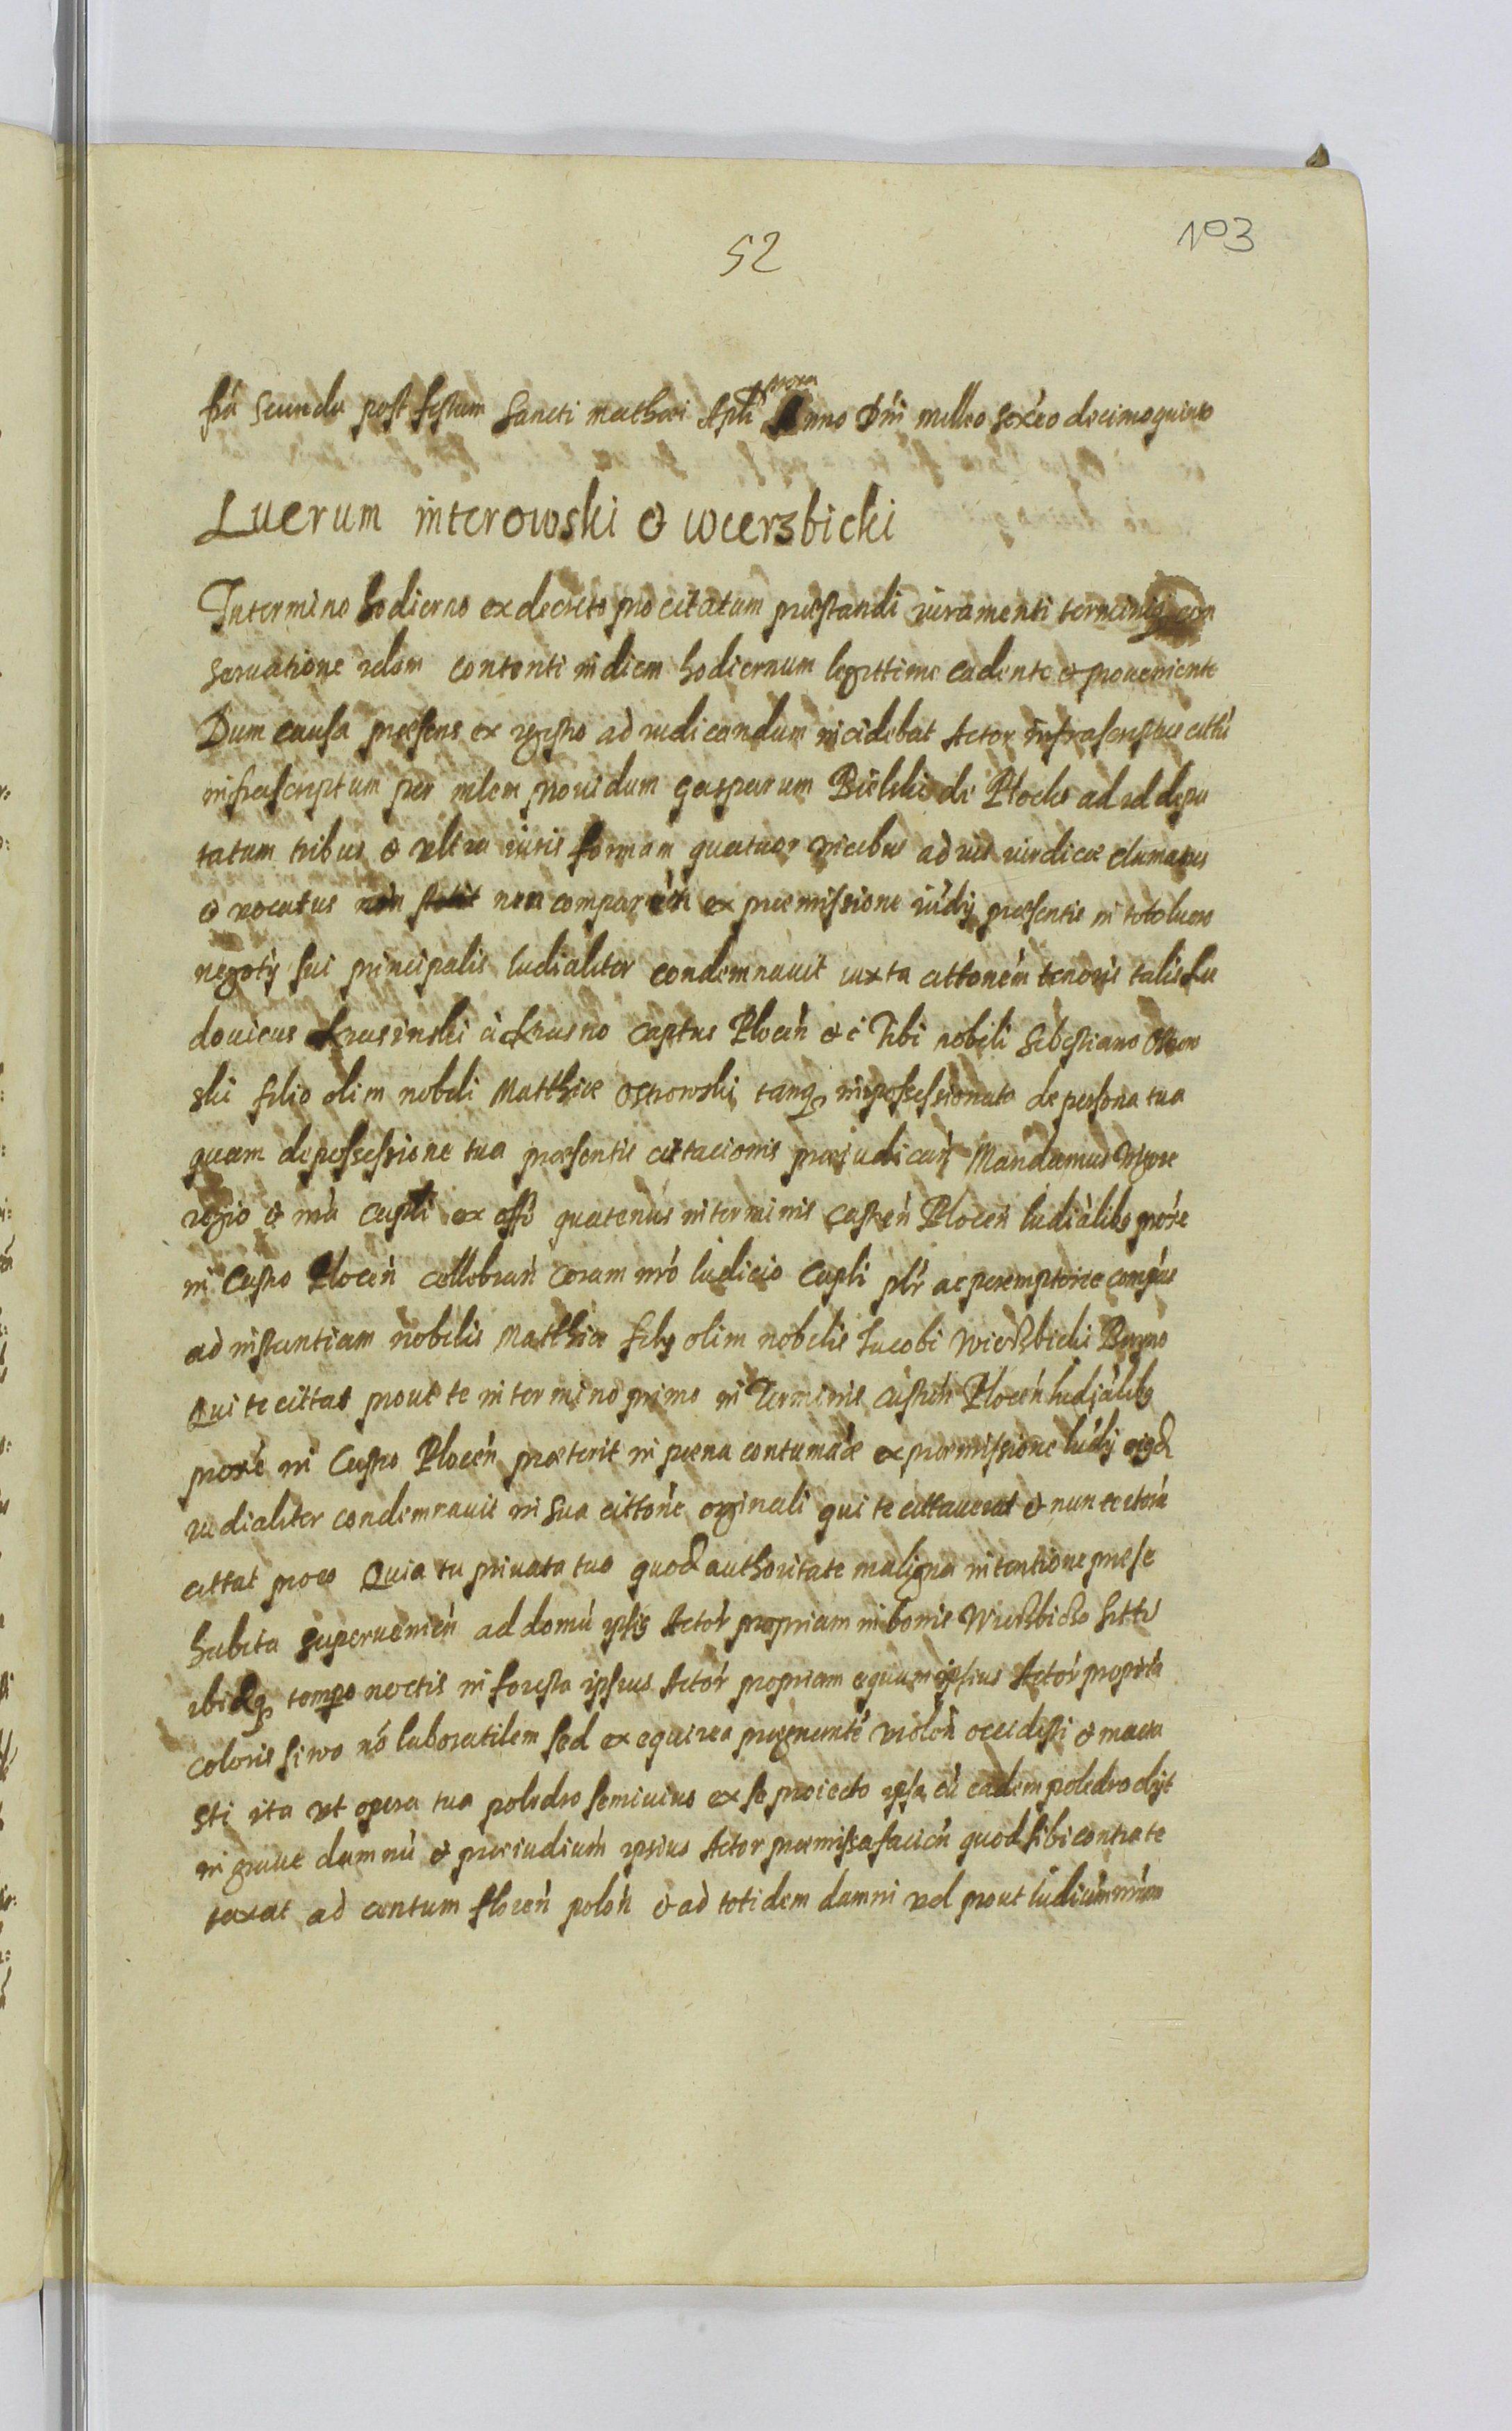 52
103
fria secunda post festum Sancti Mathaei Apli proxa Anno Dni milleo sexceo decimoquinto
Lucrum interowski & wcerzbicki
In termino hodierno ex decreto pro citatum praestandi iuramenti terminis con
servatione idem contenti in diem hodiernum legittime cadente & proueniente
Dum causa praesens ex regstro ad iudicandum incidebat Actor infrascriptus citatu
infrascriptum per mlem prouidum Gasparum Bielski de Plocko ad id depu
tatum tribus & vltra iuris formam quatuor vicibus ad ius iuridice clamatus
& vocatus non stetit non comparen ex praemissione iudij praesentis in toto lucro
negotij sui principalis Iudialiter condemnauit iuxta cittonem tenoris talis Lu
douicus Krasinski a Krasno Captus Plocen & c Tibi nobili Sebestiano Ostrow
ski filio olim nobili Matthiae Ostrowski tanq impossessionato de persona tua
quam de possessione tua praesentis cittacionis praeiudican Mandamus vigore
regio & mu capli ex offi quatenus in terminis Castren Plocen Iudialibs proxe
in Castro Plocen cellebran coram nro Iudicio Capli plr ac peremptorie compas
ad instantiam nobilis Matthiae filij olim nobilis Iacobi Wierzbicki Burgno
Qui te cittat prout te in termino primo in Terminis Castren Plocen Iudialibs
proxe in Castro Plocen praeterit in poena contumace ex praemissione Iudij
iudialiter condemnauit in sua cittone orginali qui te cittauerat & nun te
cittat proeo Quia tu priuata tua quod authoritate maligna intentione prae se
habita superuenien ad domu ipsis Actor propriam in bonis Wierzbicko Sitt
ibidq tempo noctis in foresta ipsius Actor propriam equam ipsius Actor propria
coloris siwo no laboratilem sed ex equirea pragnante violen occidisti & macta
sti ita vt opera tua poledro semiuiuo ex se proiecto ipsa cu eadem poledro
in graue damnu & praeiudium ipsius Actor praemissa facien quod sibi contra te
taxat ad centum floren polon & ad totidem damni vel prout Iudicium nrum